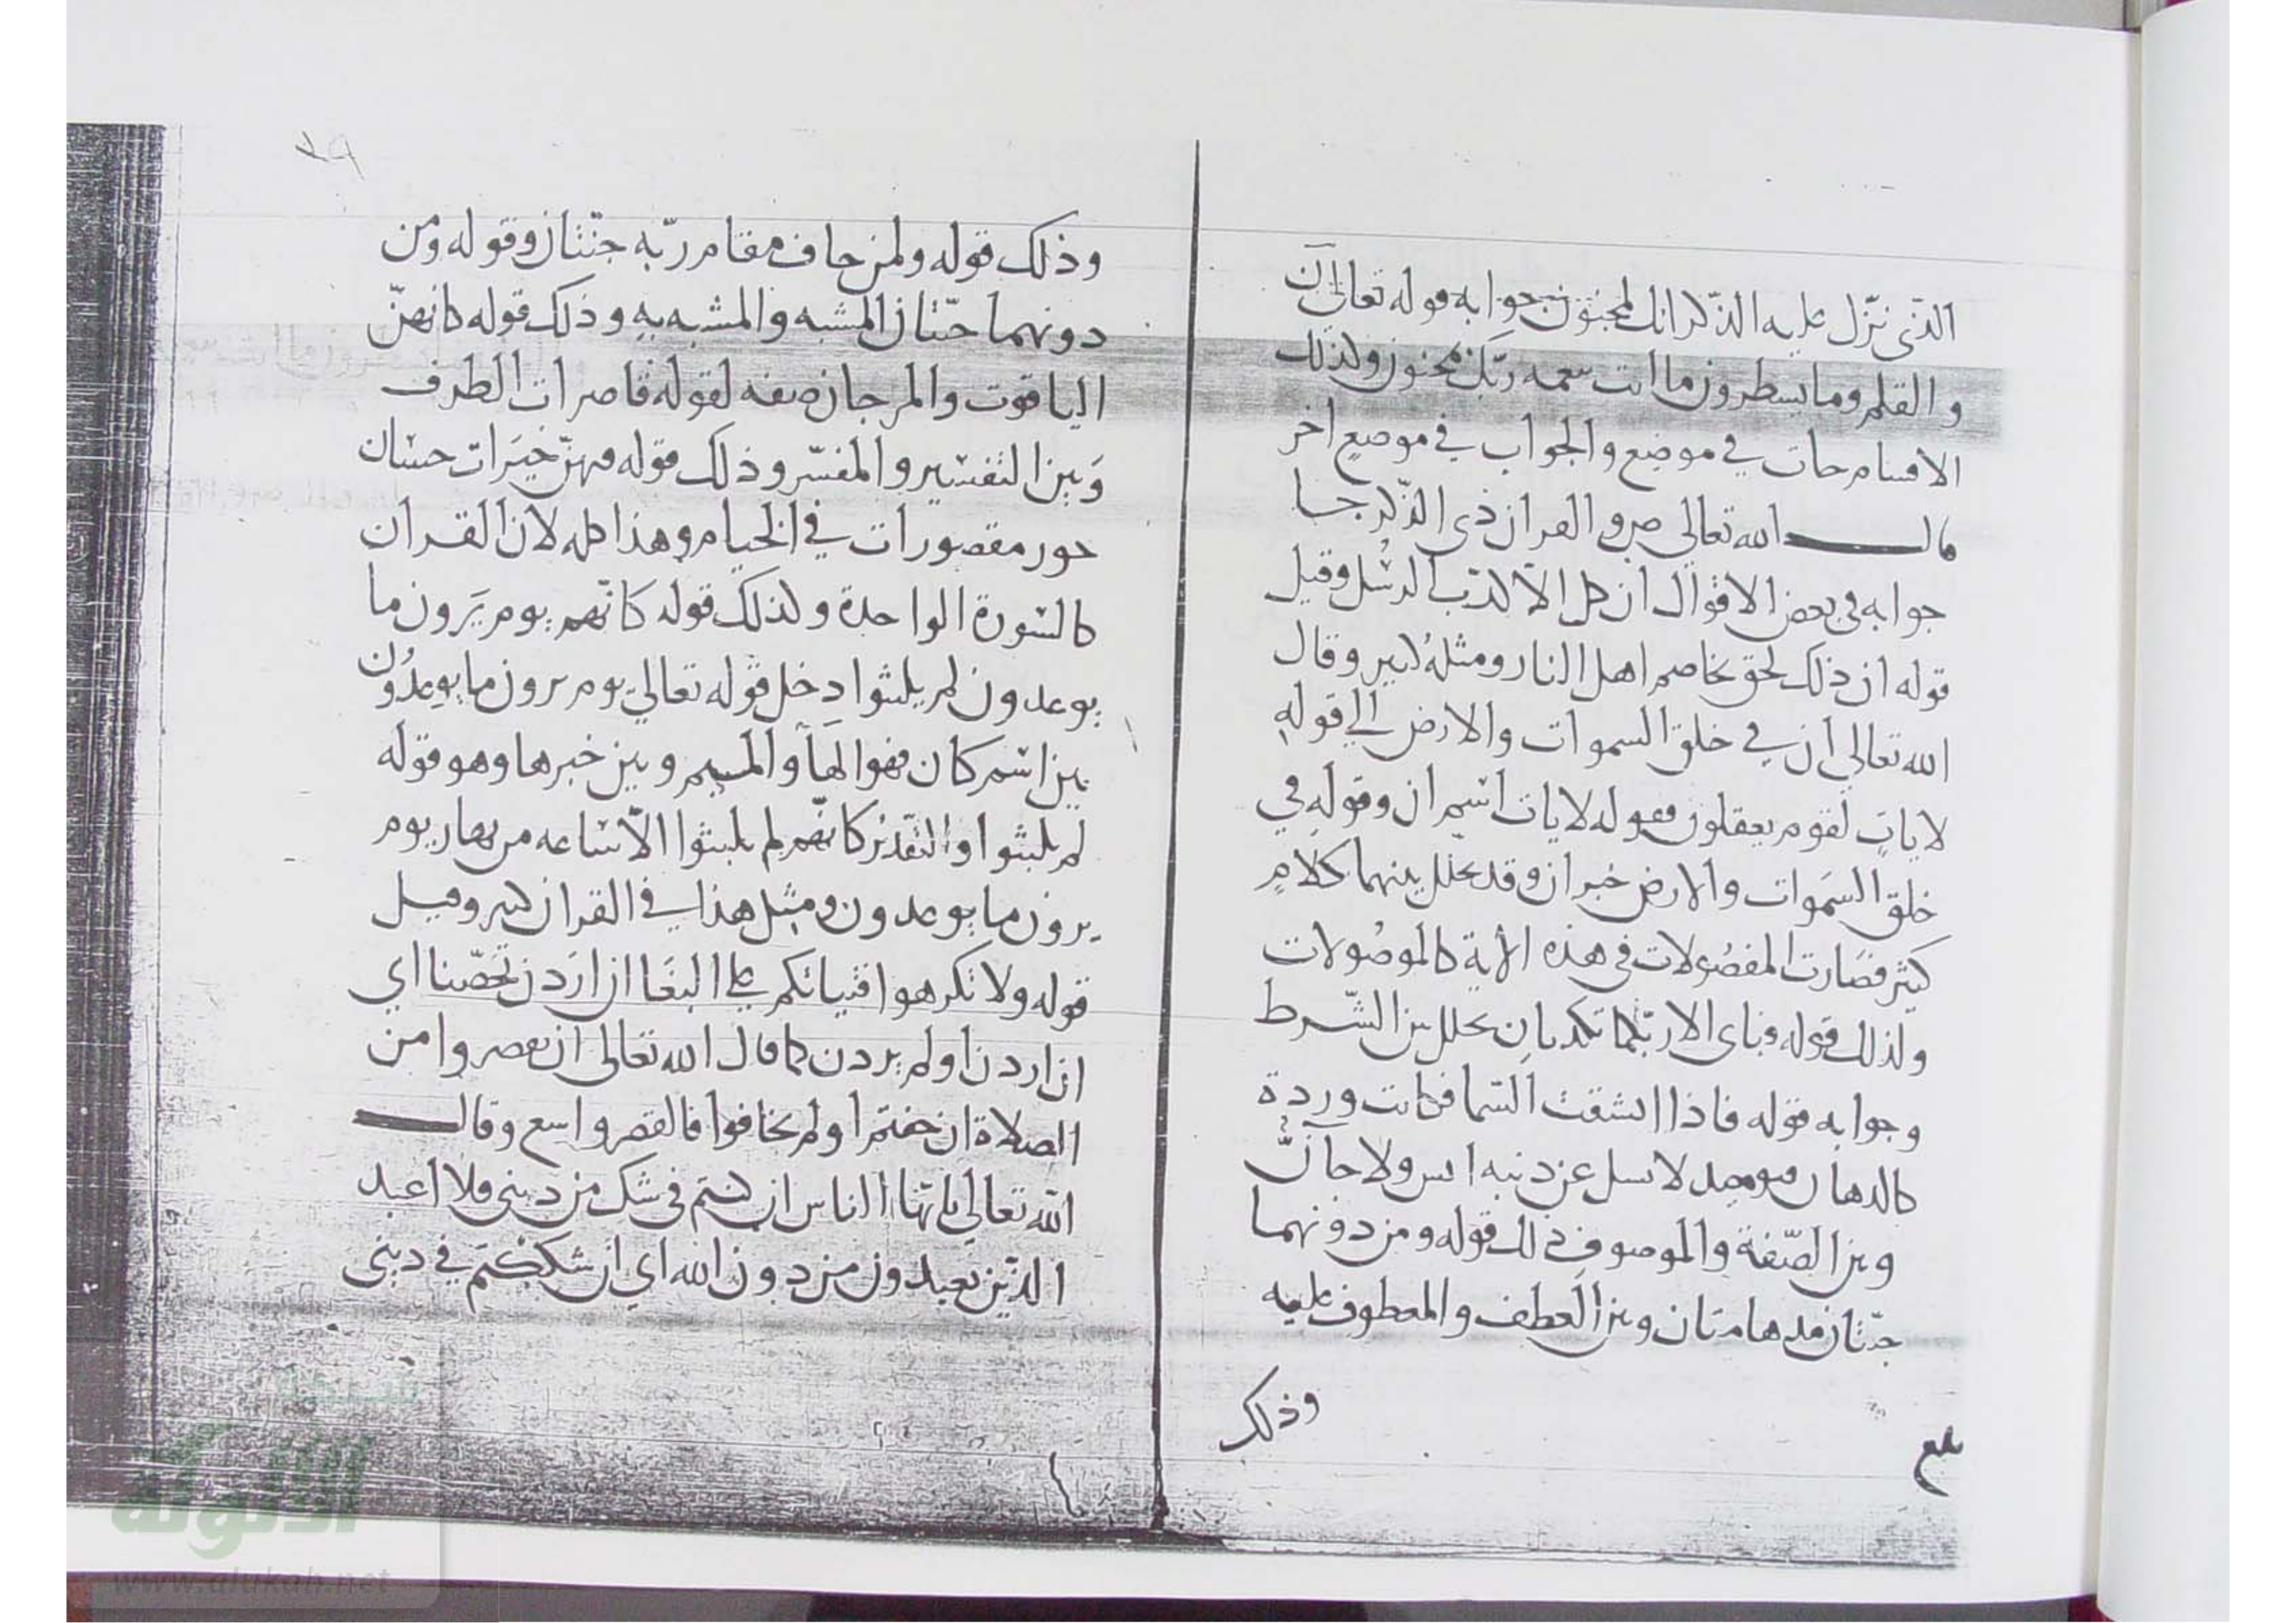 الذى نزّل عليه الذّكر انك لمجنون جوابه قوله تعالى ن
والقلم وما يسطرون ما انت بنعمه ربّك بمجنون وكذلك
الاقسام جات في موضع والجواب في موضع اخر
قال الله تعالى ص والقران ذى الذّكر جا
جوابه فى بعض الاقوال ان كل الا كذّب الرسُل وقيل
قوله ان ذلك لحق تخاصم اهل النار ومثلهُ كثير وقال
الله تعالى ان في خلق السموات والارض الي قولهِ
لاياتٍ لقوم يعقلون فقوله لايات اسم ان وقوله في
خلق السَموات والارض خبر ان وقد تخلل بينهما كلامٍ
كثير فصَارت المفصُولات فى هذه الاية كالموصُولات
ولذلك قوله فباى الا ربّكما تكذبان تخلل بين الشّرط
وجوابه قوله فاذا انشقت السّما فكانت وردة
كالدهان فيومئذ لا يسل عن ذنبه انس ولا جآنّ
وبين الصّفة والموصوف ذلك قوله ومن دونهما
جنّتان مدهامتان وبين العطف والمعطوف عليه
وذلك
بلغ
وذلك قوله ولمن خاف مقام ربّه جنّتان وقوله ومن
دونهما جنّتان المشبه والمشبه به وذلك قوله كانهنّ
الياقوت والمرجان صفه لقوله قاصرات الطرف
وَبين التفسير والمفسّر وذلك قوله فيهنّ خيَرات حسَان
حور مقصورات في الخيام وهذا كله لان القران
كالسورة الواحدة ولذلك قوله كانّهم يوم يَرون ما
يوعدون لم يلبثوا دخل قوله تعالي يوم يرون ما يوعدُون
بين اسم كان فهوا الهَآ والميم وبين خبرها وهو قوله
لم يلبثوا والتقديرُ كانّهم لم يلبثوا الّا ساعه من نهار يوم
يرون ما يوعدون ومثل هذا في القران كثير وقيل
قوله ولا تكرهوا فتياتكم على البغَا ان ارَدن تحصّنا اي
ان اردن او لم يردن كما قال الله تعالى ان تقصروا من
الصلاة ان خفتم او لم تخافوا فالقصر واسع وقال
الله تعالي يا ايّها الناس ان كنتم فى شك من دينى فلا اعبد
الذّين تعبدون من دون الله اي ان شككتم في دينى